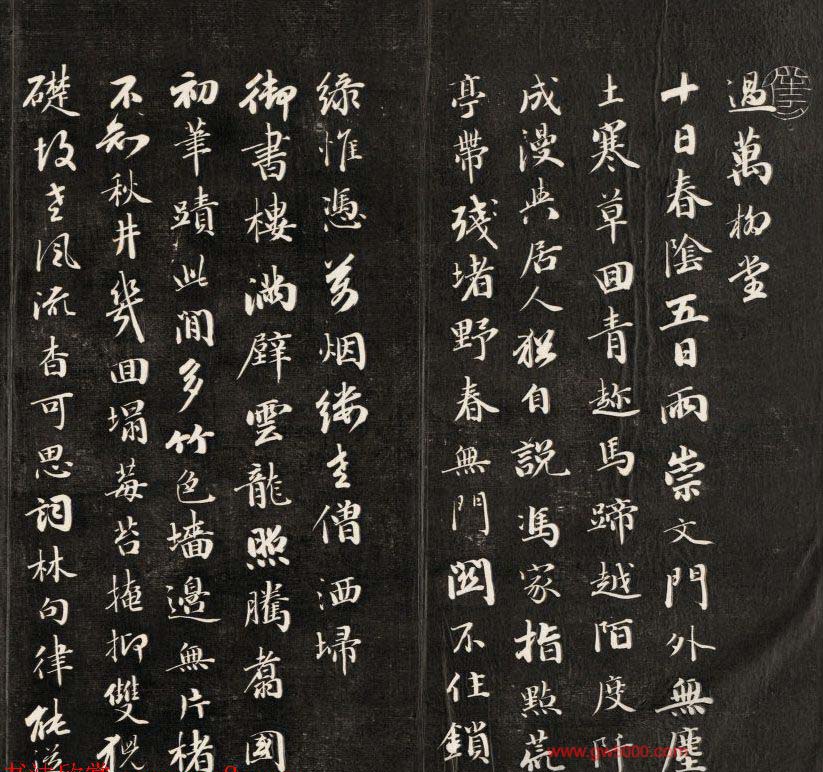 過萬柳堂
十日春陰五日兩崇文門外無塵
土寒草回青趂馬蹄越陌度阡
成漫與居人猶自說馮家指點荒
亭帶殘堵野春無門關不住鎖
綠惟憑萬烟縷老僧洒埽
御書樓滿壁雲龍照騰翥國
初筆蹟此間多竹色墻邊無片楮
不知秋井幾回塌莓苔掩抑雙
礎故老風流杳可思詞林句律能
www.gw8000.com